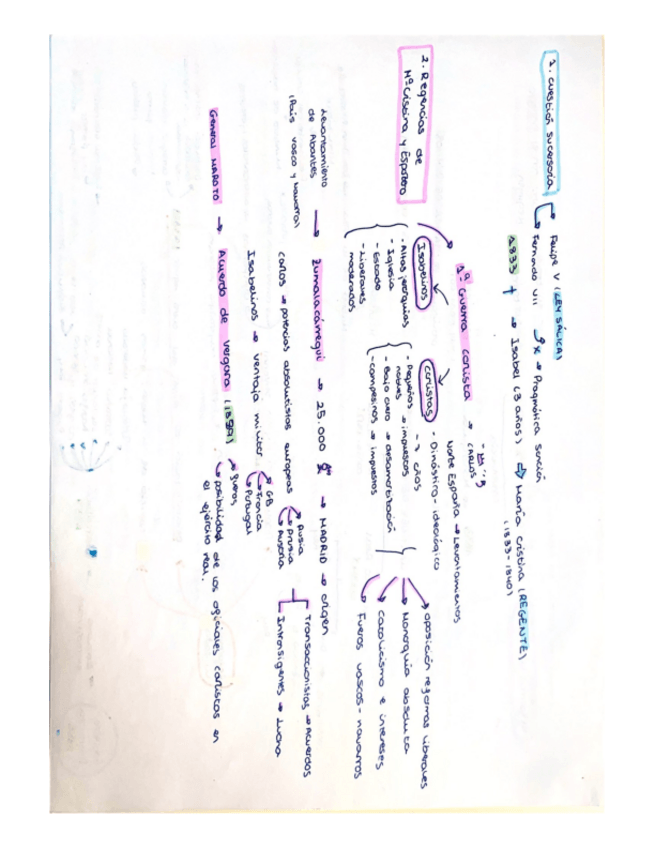 1. Cuestión sucesoria
Felipe V (LEY SÁLICA)
Fernando VII
x → Pragmática Sanción
1833 † → Isabel (3 años) ⇒ María Cristina (REGENTE)
(1833-1840)
2. Regencias de
Mª Cristina y Espartero
1ª Guerra carlista
→ CARLOS
Norte España → Levantamientos
- Dinástico-ideológico
- 7 años
Isabelinos
- Altas jerarquías
- Iglesia
- Estado
- Liberales
moderados
Carlistas
- Pequeños
nobles → impuestos
- Bajo clero → desamortización
- campesinos → impuestos
oposición reformas liberales
Monarquía absoluta
Catolicismo e intereses
Fueros vascos-navarros
Levantamiento
de Abantes
(País Vasco y Navarra)
→ Zumalacárregui → 25.000 → MADRID → origen
Carlos → potencias absolutistas europeas
Rusia
Prusia
Austria
Isabelinos → ventaja militar
GB
Francia
Portugal
Transaccionistas → Acuerdos
Intransigentes → Lucha
General MAROTO → Acuerdo de Vergara (1839)
fueros
posibilidad de los oficiales carlistas en
el ejército real.